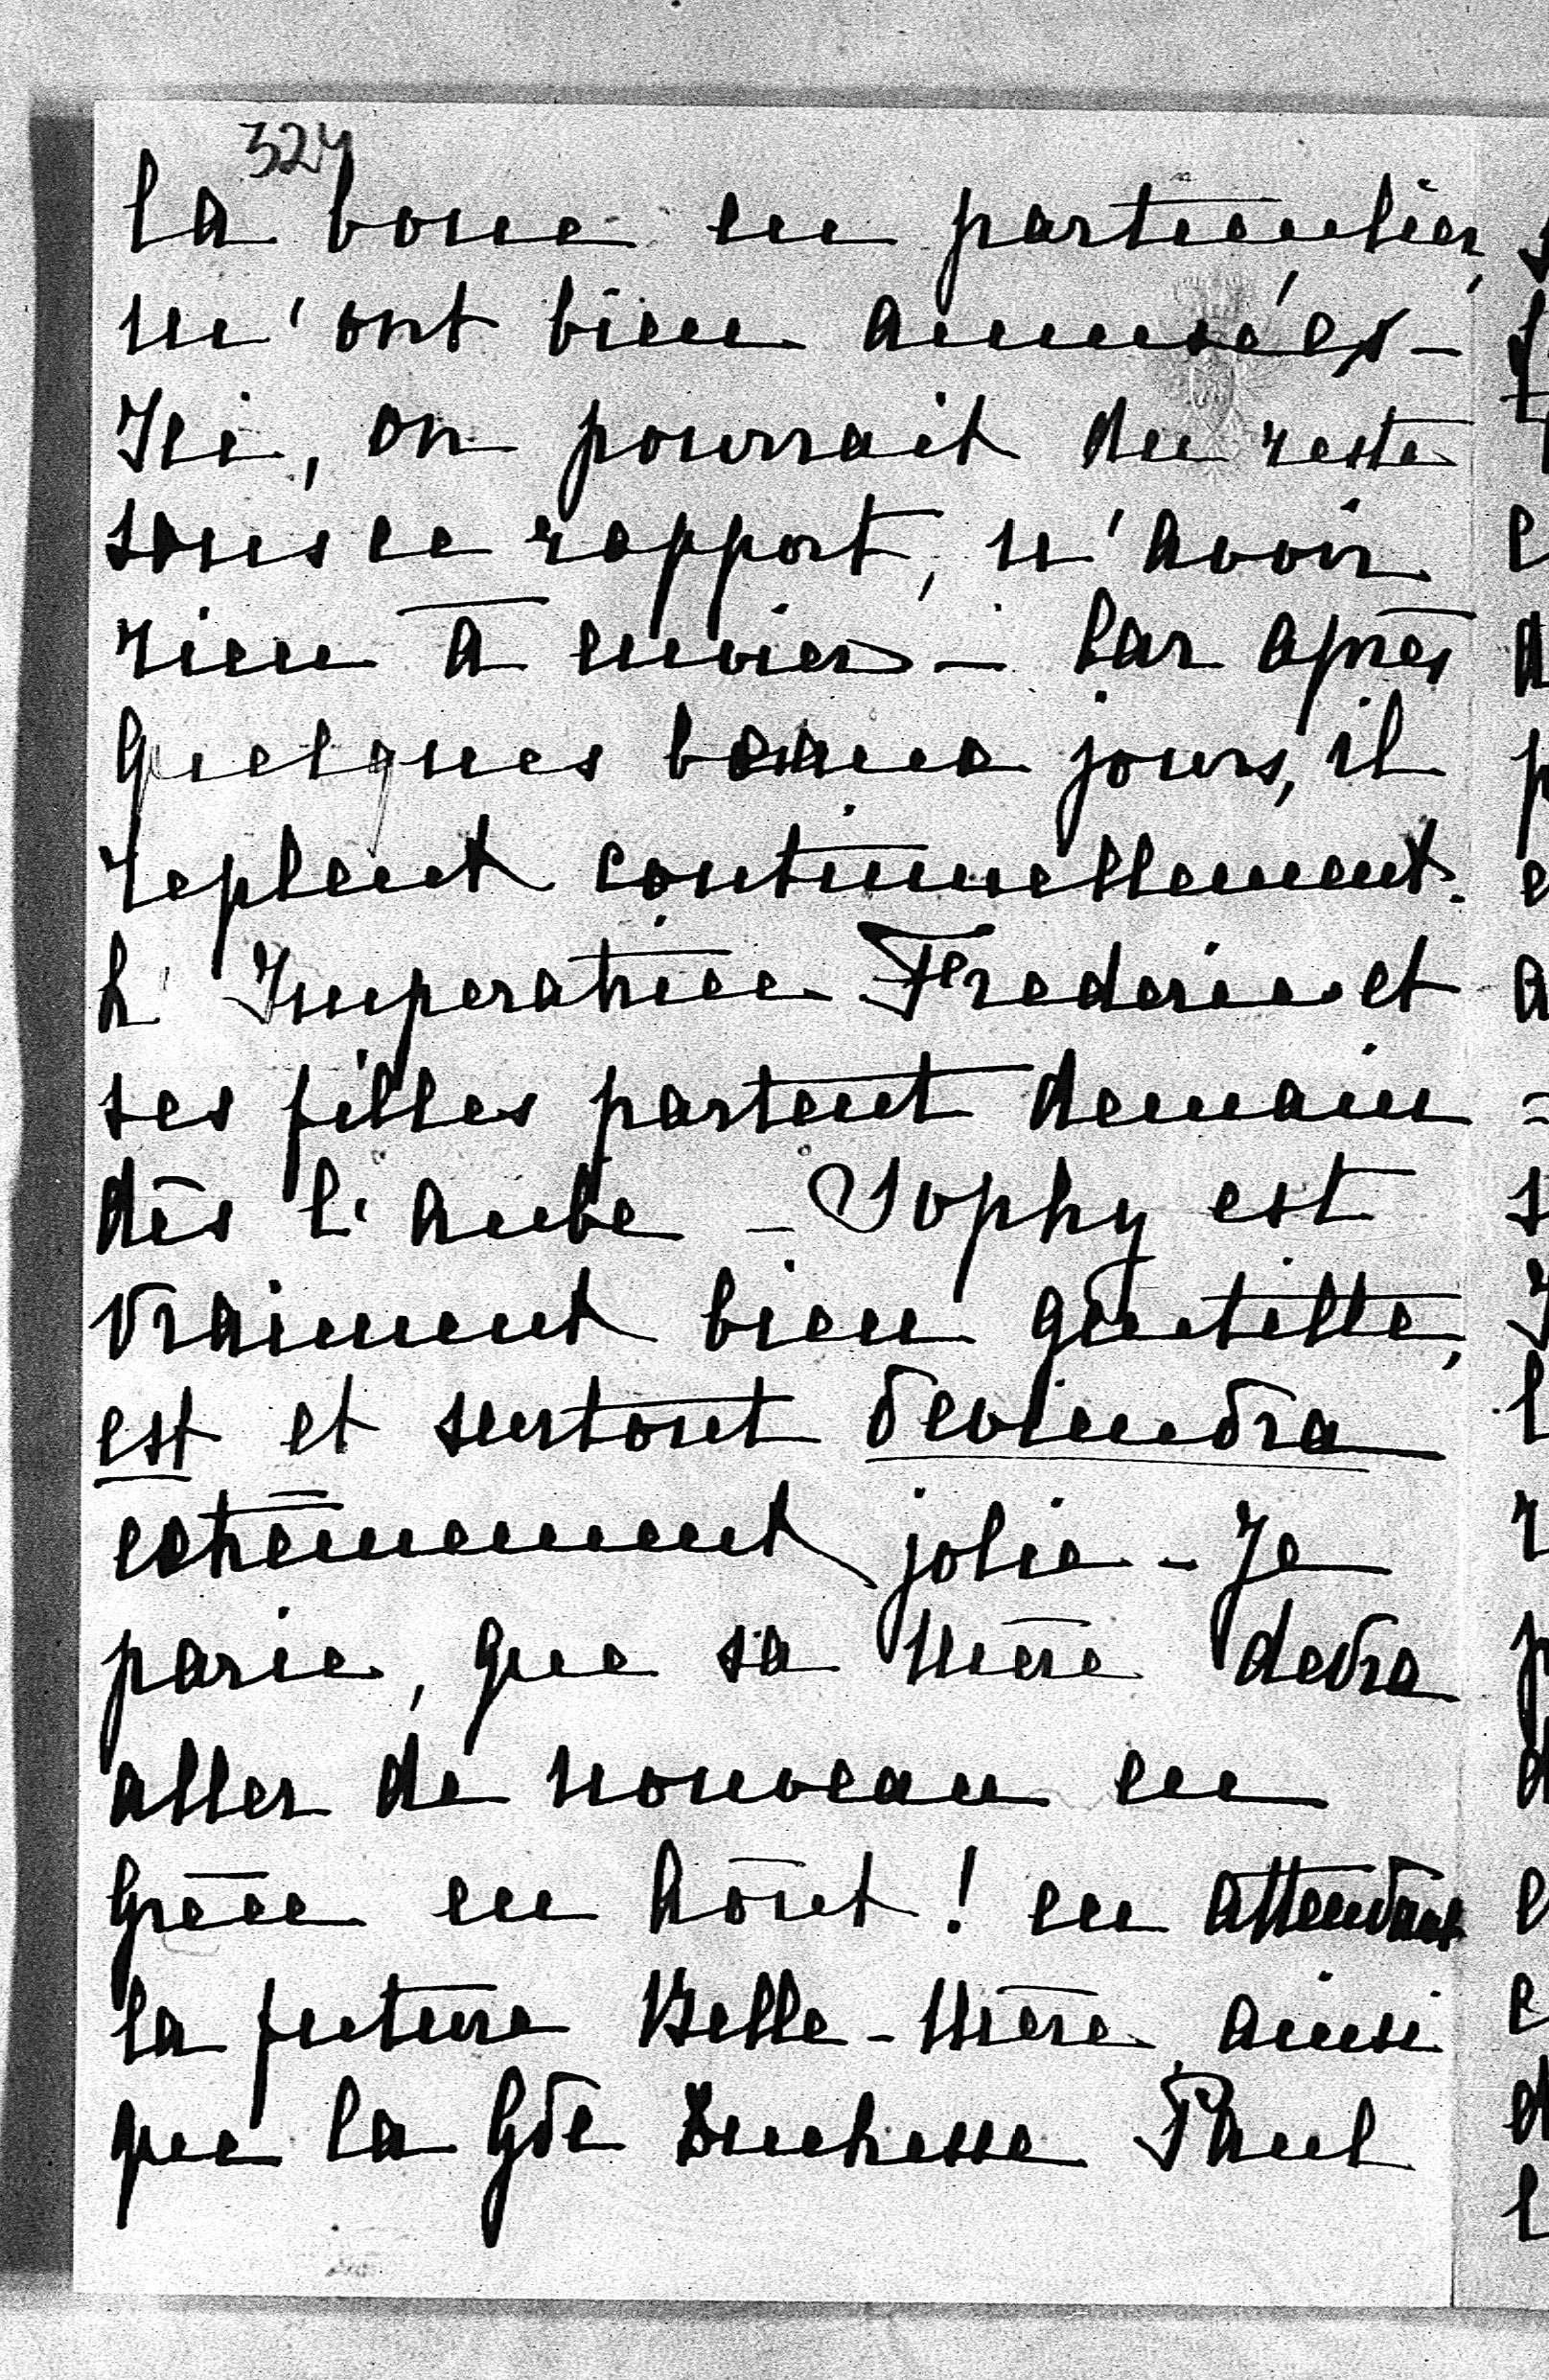 324
la boue en particulier,
m'ont bien amusées –
Ici, on pourrait du reste
sous ce rapport, n'avoir
rien à envier – Car après
quelques beaux jours, il
repleut continuellement.
L'Imperatrice Frederic et
ses filles partent demain
dès l'aube – Sophy est
vraiment bien gentille,
est et surtout deviendra
extrêmement jolie – Je
parie, que sa mère devra
aller de nouveau en
Grèce en Août ! en attendant
la future Belle-Mère ainsi
que la Gde Duchesse Paul